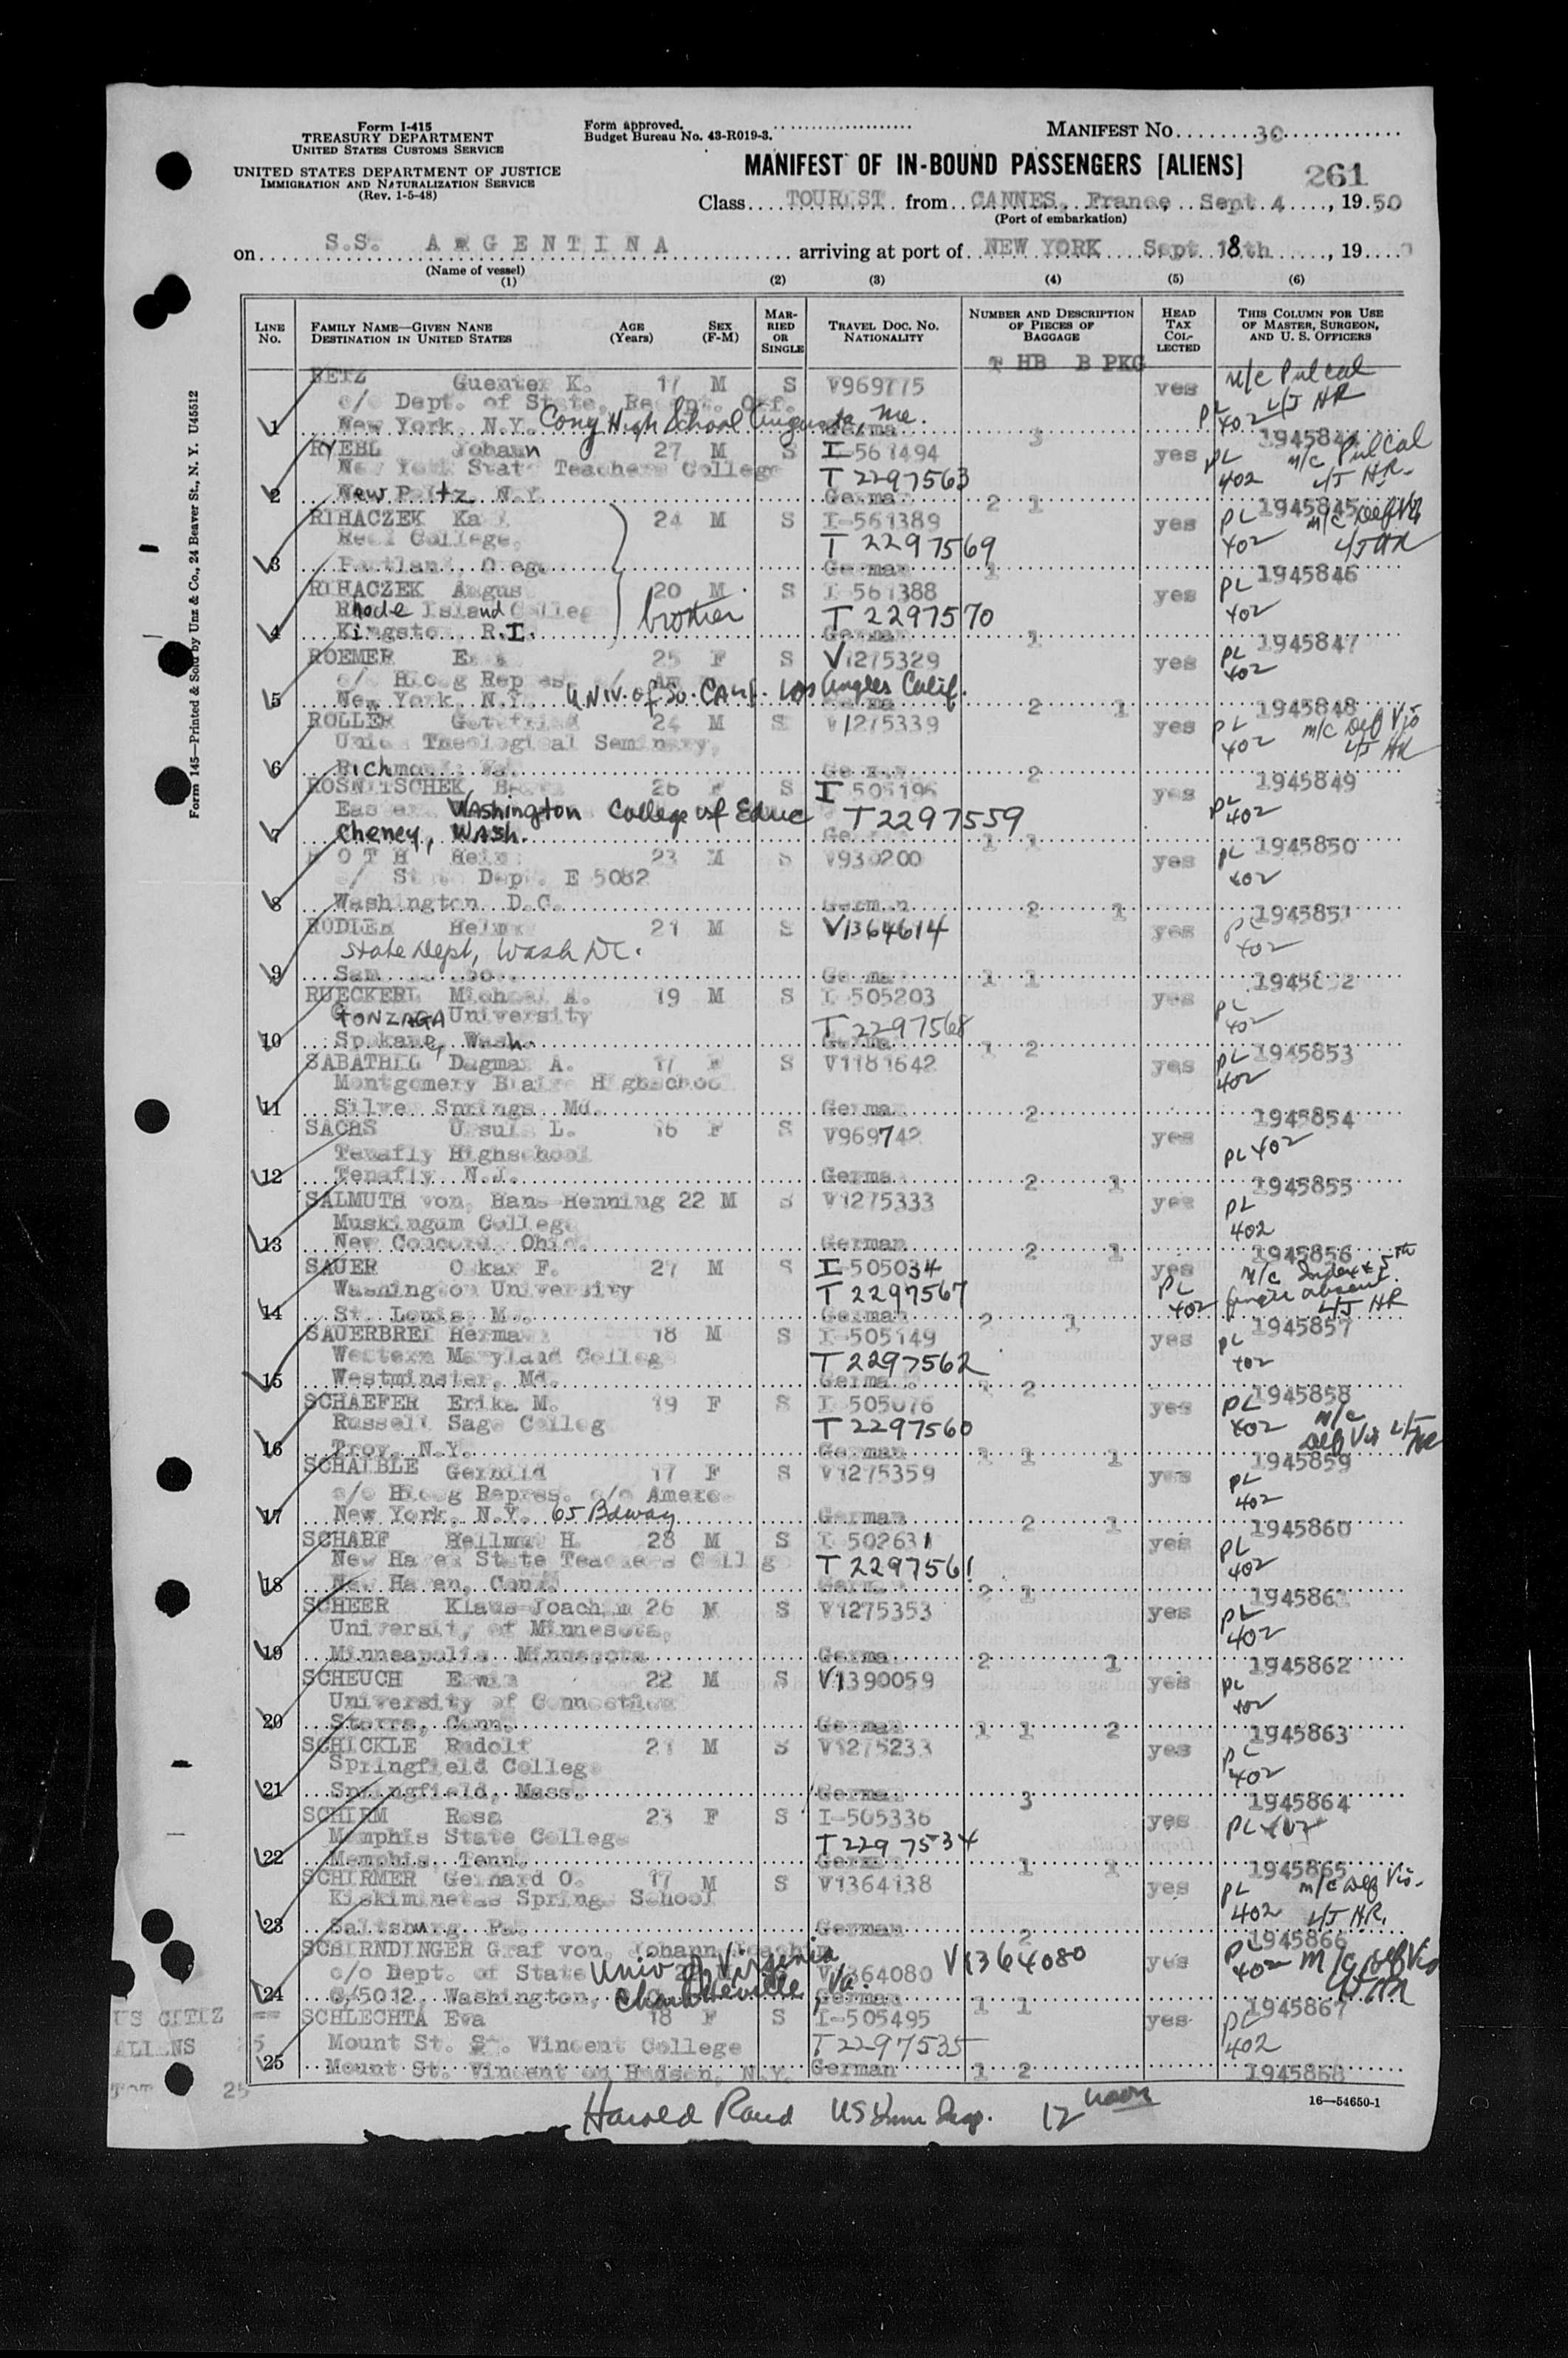 Form I-415
TREASURY DEPARTMENT
UNITED STATES CUSTOMS SERVICE
UNITED STATES DEPARTMENT OF JUSTICE
IMMIGRATION AND NATURALIZATION SERVICE
(Rev. 1-5-48)
Form approved.
Budget Bureau No. 43-R019-3.
MANIFEST NO. 30
MANIFEST OF IN-BOUND PASSENGERS [ALIENS]
261
Class TOURIST from CANNES, France, Sept 4, 1950
(Port of embarkation)
on S.S. ARGENTINA arriving at port of NEW YORK Sept 18th, 19
(Name of vessel)
(1) (2) (3) (4) (5) (6)
LINE NO.
FAMILY NAME—GIVEN NANE
DESTINATION IN UNITED STATES
AGE (Years)
SEX (F-M)
MARRIED OR SINGLE
TRAVEL DOC. NO. NATIONALITY
NUMBER AND DESCRIPTION OF PIECES OF BAGGAGE
T HB B PKG
HEAD TAX COLLECTED
THIS COLUMN FOR USE OF MASTER, SURGEON, AND U. S. OFFICERS
Form 145—Printed & Sold by Unz & Co., 24 Beaver St., N. Y. U45512
BETZ Guenter K. 17 M S V969775 yes m/c Pul cal
c/o Dept. of State, Recept. Off. PL 402 L/J HR
1 New York, N.Y. Cony High School Augusta, Me. 3 1945844
RYEBL Johann 27 M S I-561494 yes PL m/c Pul cal
New York State Teachers College T 2297563 402 L/J HR
2 New Paltz N.Y. German 2 1 1945845
RIHACZEK Ka 24 M S I-561389 yes PL m/c Def Vis
College, T 2297569 402 L/J HR
3 German 1 1945846
RIHACZEK Angus 20 M S I-561388 yes PL
Rhode Island College brother T 2297570 402
4 Kingston, R.I. German 1 1945847
ROEMER 25 F S V1275329 yes PL
c/o Hicog 402
5 New York, N.Y. Univ. of So. Calif. Los Angeles Calif. 2 1 1945848
ROLLER 24 M S V1275339 yes PL m/c Def Vis
Union Theological Seminary, 402 L/J HR
6 Richmond, Va. 2 1945849
ROSNITSCHEK, 26 F S I 505196 yes PL
Eastern Washington College of Educ T 2297559 402
7 Cheney, Wash. 1 1 1945850
ROTH 23 M S V930200 yes PL
c/o State Dept. E 5082 402
8 Washington D.C. German 2 1 1945851
21 M S V1364614 yes PL
State Dept, Wash DC. 402
9 1 1
RUECKERL Michael A. 19 M S I 505203 yes PL
GONZAGA University T 2297568 402
10 Spokane, Wash. 1 2 1945853
SABATHIL Dagmar A. 17 F S V1181642 yes PL
Montgomery Blair Highschool 402
11 Silver Springs Md. German 2 1945854
SACHS Ursula L. 16 F S V969742 yes
Tenafly Highschool PL 402
12 Tenafly N.J. German 2 1 1945855
SALMUTH von, Hans Henning 22 M S V1275333 yes PL
Muskingum College 402
13 New Concord, Ohio German 2 1 1945856
SAUER Oskar F. 27 M S I-505034 yes m/c Index & 5th
Washington University T 2297567 PL 402 finger absent
14 St. Louis, Mo. German 2 1 L/J HR 1945857
SAUERBREI Herman 18 M S I-505149 yes PL
Western Maryland College T 2297562 402
15 Westminster, Md. German 1 2 1945858
SCHAEFER Erika M. 19 F S I 505076 yes PL m/c
Russell Sage College T 2297560 402 Def Vis L/J HR
16 Troy, N.Y. German 1 1 1 1945859
SCHAIBLE Gerhild 17 F S V1275359 yes PL
c/o Hicog Repres. c/o Amexco 402
17 New York, N.Y. 65 Bdway German 2 1 1945860
SCHARF Hellmut H. 28 M S I 502631 yes PL
New Haven State Teachers College T 2297561 402
18 New Haven, Conn. German 2 1 1945861
SCHEER Klaus-Joachim 26 M S V1275353 yes PL
University of Minnesota, 402
19 Minneapolis Minnesota German 2 1 1945862
SCHEUCH Erwin 22 M S V1390059 yes PL
University of Connecticut 402
20 Storrs, Conn. German 1 1 2 1945863
SCHICKLE Rudolf 21 M S V1275233 yes PL
Springfield College 402
21 Springfield, Mass. German 3 1945864
SCHIRM Rosa 23 F S I-505336 yes
Memphis State College T 2297534 PL 402
22 Memphis, Tenn. German 1 1 1945865
SCHIRMER Gerhard O. 17 M S V1364138 yes PL m/c Def Vis.
Kiskiminetas Springs School 402 L/J HR.
23 Saltsburg Pa. German 2 1945866
SCHIRNDINGER Graf von, Johann Joachim V1364080 yes PL m/c Def Vis
c/o Dept. of State Univ of Virginia V1364080 402 L/J HR
24 C/5012, Washington, Charlotteville, Va. German 1 1 1945867
SCHLECHTA Eva 18 F S I-505495 yes PL
Mount St. St. Vincent College T 2297535 402
25 Mount St. Vincent on Hudson, N.Y. German 1 2 1945868
US CITIZ ==
ALIENS 25
TOT 25
Harold Rand US Imm Insp. 12 noon
16—54650-1